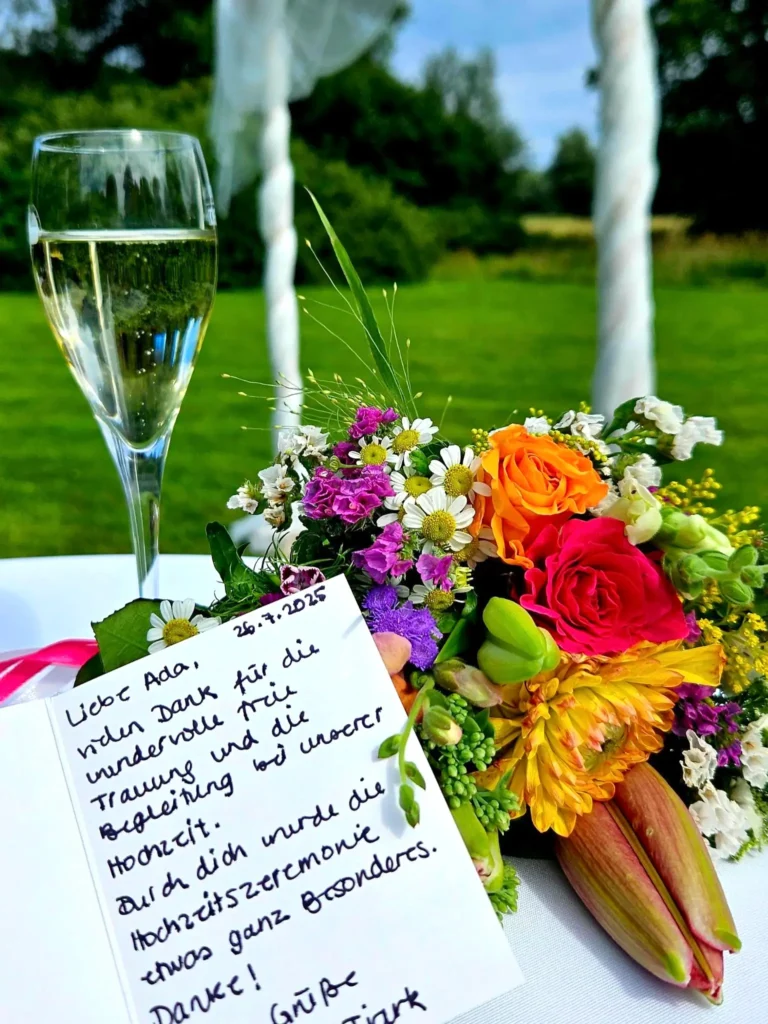 26.7.2025
Liebe Ada,
vielen Dank für die
wundervolle freie
Trauung und die
Begleitung bei unserer
Hochzeit.
Durch dich wurde die
Hochzeitszeremonie
etwas ganz Besonderes.
Danke!
Grüße